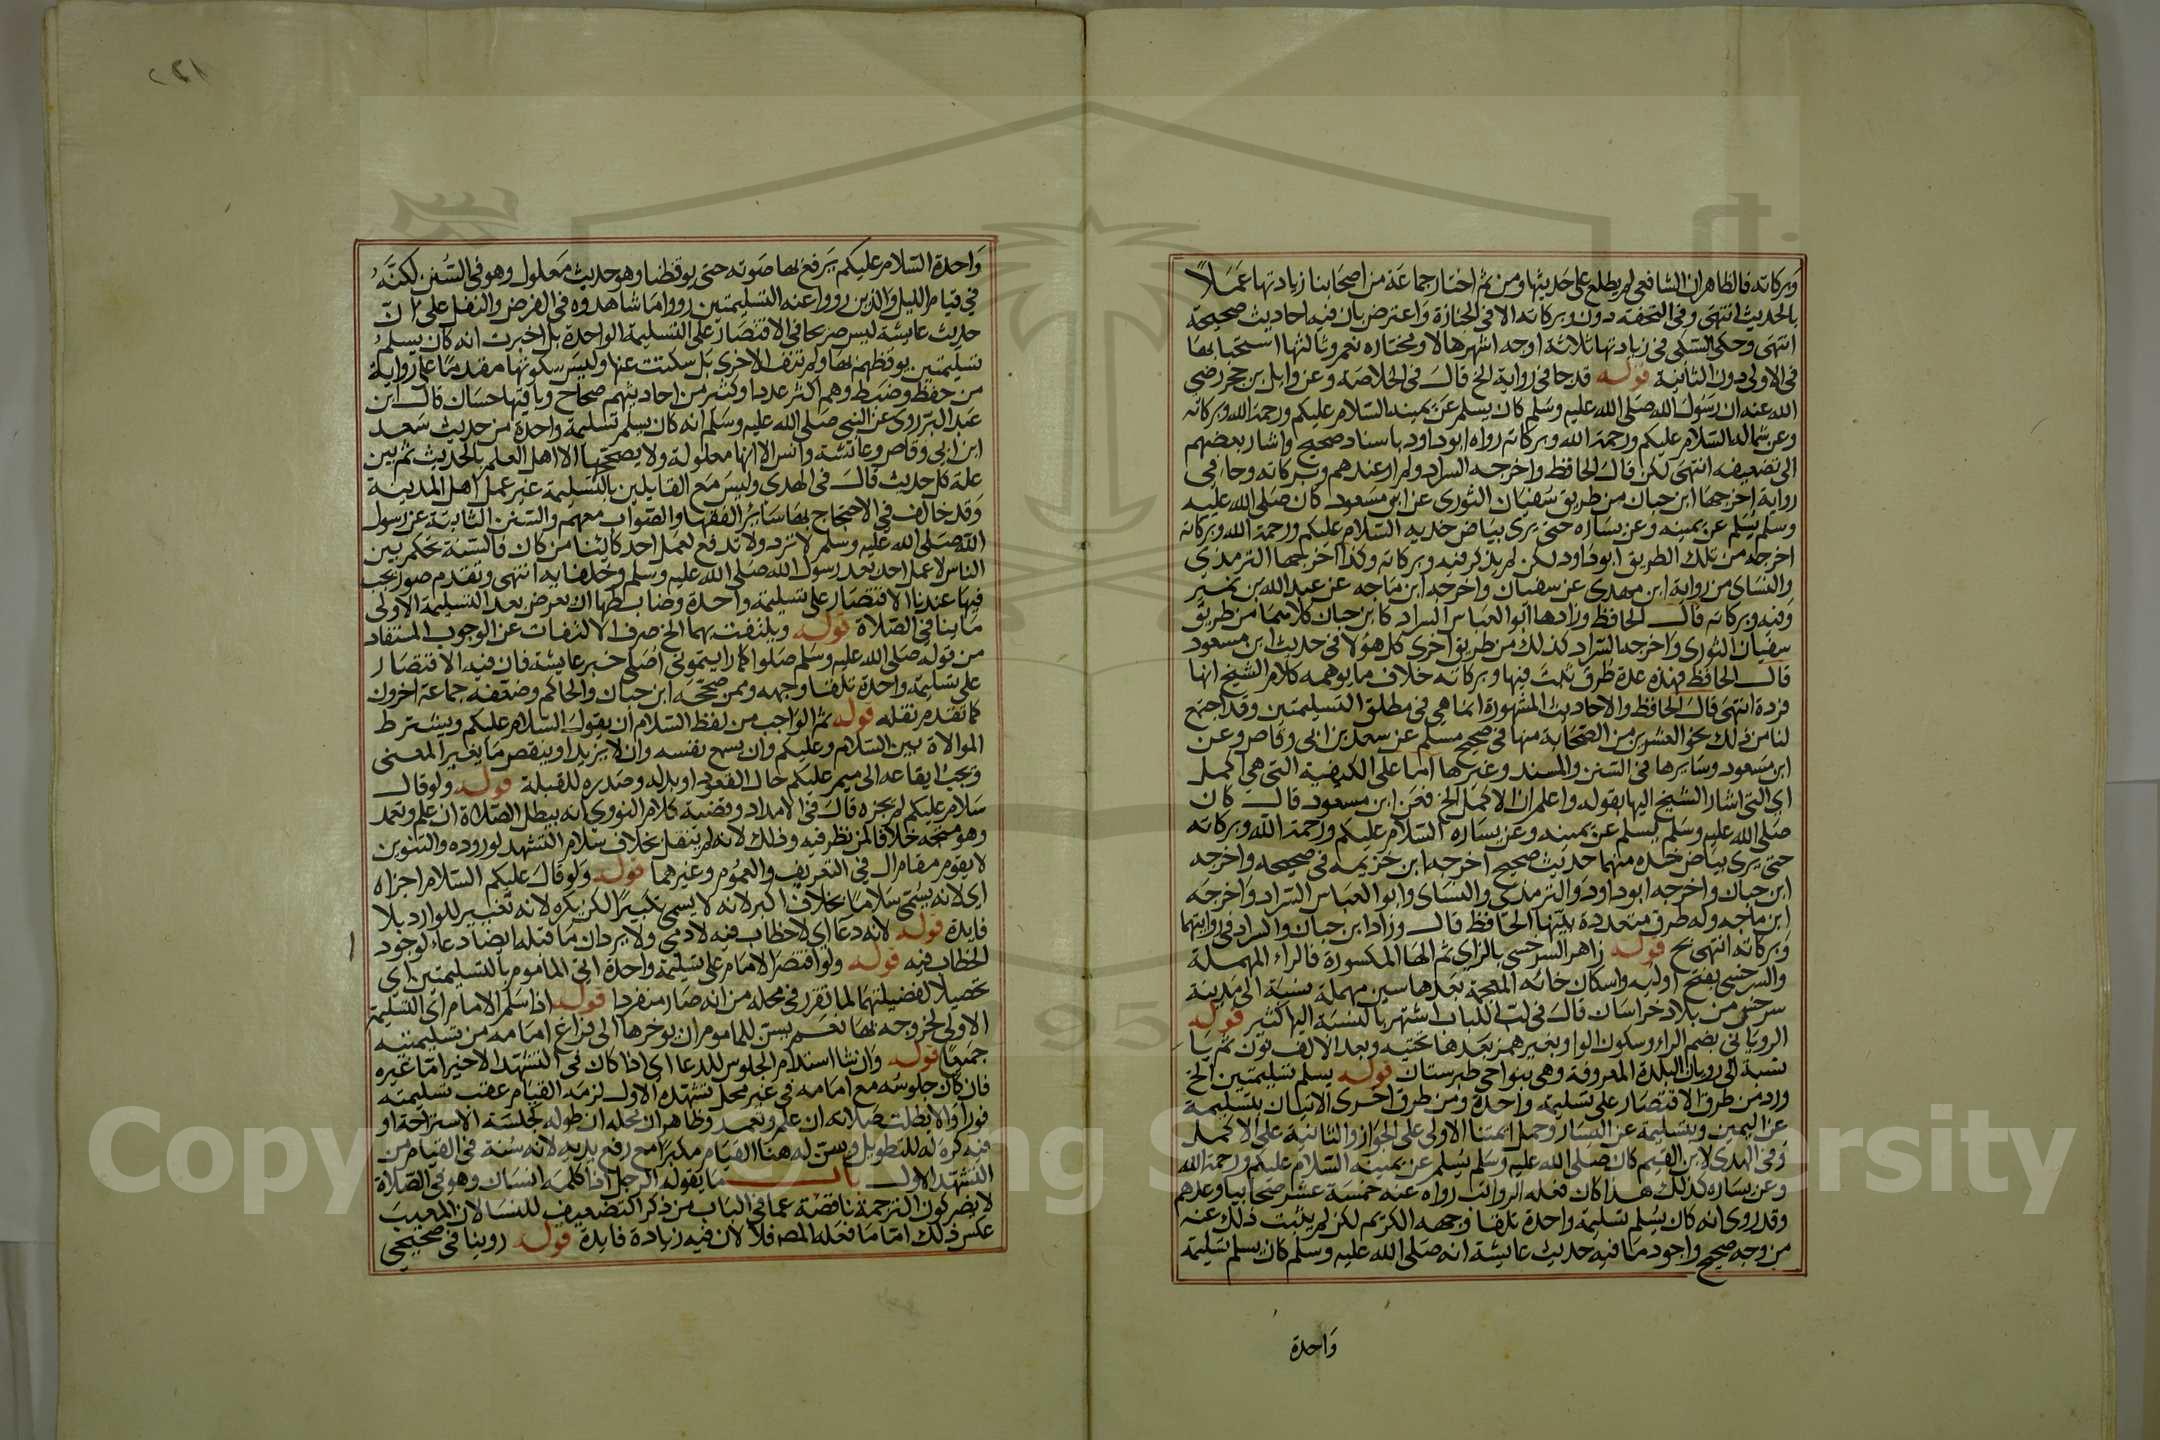 وبركاته فالظاهر ان الشافعي لم يطلع على حديثها ومن ثم اختار جماعة من اصحابنا زيادتها عملاً
بالحديث انتهى وفي التحفة دون وبركاته الا في الجنازة واعترض بان فيه احاديث صحيحة
انتهى وحكى السبكي في زيادتها ثلاثة اوجه اشهرها لا ومختاره نعم وثالثها استحبابها
في الاولى دون الثانية قوله قد جا في رواية الخ قال في الخلاصة وعن وايل بن حجر رضي
الله عنه ان رسول الله صلى الله عليه وسلم كان يسلم عن يمينه السلام عليكم ورحمة الله وبركاته
وعن شماله السلام عليكم ورحمة الله وبركاته رواه ابو داود باسناد صحيح واشار بعضهم
الى تضعيفه انتهى لكن قال الحافظ واخرجه السراد ولم ار عندهم وبركاته وجا في
رواية اخرجها ابن حبان من طريق سفيان الثوري عن ابن مسعود كان صلى الله عليه
وسلم يسلم عن يمينه وعن يساره حتى يرى بياض خديه السلام عليكم ورحمة الله وبركاته
اخرجه من تلك الطريق ابو داود لكن لم يذكر فيه وبركاته وكذا اخرجها الترمذي
والنساي من رواية ابن مهدي عن سفيان واخرجه ابن ماجه عن عبد الله بن نمير
وفيه وبركاته قال الحافظ وزادها ابو العباس السراد كابن حبان كلاهما من طريق
سفيان الثوري واخرجه السراد كذلك من طريق اخرى كل هؤلا في حديث ابن مسعود
قال الحافظ فهذه عدة طرق ثبت فيها وبركاته خلاف ما يوهمه كلام الشيخ انها
فردة انتهى قال الحافظ والاحاديث المشهورة انما هي في مطلق التسليمتين وقد اجتمع
لنا من ذلك نحو العشرين من الصحابة منها في صحيح مسلم عن سعد بن ابي وقاص وعن
ابن مسعود وسايرها في السنن والمسند وغيرها اما على الكيفية التي هي اكمل
اي التي اشار الشيخ اليها بقوله واعلم ان الاكمل الخ فعن ابن مسعود قال كان
صلى الله عليه وسلم يسلم عن يمينه وعن يساره السلام عليكم ورحمة الله وبركاته
حتى يرى بياض خده منهما حديث صحيح اخرجه ابن خزيمه في صحيحه واخرجه
ابن حبان واخرجه ابو داود والترمذي والنساي وابو العباس السراد واخرجه
ابن ماجه وله طرق متعددة بينها الحافظ قال وزاد ابن حبان والسراد في روايتهما
وبركاته انتهى بح قوله زاهر السرخسي بالزاي ثم الها المكسورة فالراء المهملة
والسرخسي بفتح اوليه واسكان خائه المعجمة بعدها سين مهملة نسبة الى مدينة
سرخس من بلاد خراسان قال في لب اللباب اشتهر بالنسبة اليها كثير قوله
الروياني بضم الراء وسكون الواو بغير همز بعدها تحتيه وبعد الالف نون ثم يا
نسبة الى رويان البلدة المعروفة وهي بنواحي طبرستان قوله يسلم تسليمتين الخ
ورد من طرق الاقتصار على تسليمه واحدة ومن طرق اخرى الاتيان بتسليمة
عن اليمين وبتسليمة عن اليسار وحمل ايمتنا الاولى على الجواز والثانية على الاكمل
وفي الهدي لابن القيم كان صلى الله عليه وسلم يسلم عن يمينه السلام عليكم ورحمة الله
وعن يساره كذلك هذا كان فعله الراتب رواه عنه خمسة عشر صحابيا وعدهم
وقد روي انه كان يسلم تسليمة واحدة تلقا وجهه الكريم لكن لم يثبت ذلك عنه
من وجه صحيح واجود ما فيه حديث عايشة انه صلى الله عليه وسلم كان يسلم تسليمة
واحدة
واحدة السلام عليكم يرفع بها صوته حتى يوقظنا وهو حديث معلول وهو في السنن لكنه
في قيام الليل والذين رووا عنه التسليمتين رووا ما شاهدوه في الفرض والنفل على ان
حديث عايشة ليس صريحا في الاقتصار على التسليمة الواحدة بل اخبرت انه كان يسلم
تسليمتين يوقظهم بها ولم تنف الاخرى بل سكتت عنها وليس سكوتها مقدما على رواية
من حفظ وضبط وهم اكثر عددا وكثير من احاديثهم صحاح وباقيها حسان قال ابن
عبد البر روي عن النبي صلى الله عليه وسلم انه كان يسلم تسليمة واحدة من حديث سعد
ابن ابي وقاص وعائشة وانس الا انها معلولة ولا يصححها الا اهل العلم بالحديث ثم بين
علة كل حديث قال في الهدي وليس مع القايلين بالتسليمة غير عمل اهل المدينة
وقد خالف في الاحتجاج بها ساير الفقها والصواب معهم والسنن الثابتة عن رسول
الله صلى الله عليه وسلم لا ترد ولا تدفع لعمل احد كائنا من كان فالسنة تحكم بين
الناس لا عمل احد بعد رسول الله صلى الله عليه وسلم وخلفايه انتهى وتقدم صور يجب
فيها عندنا الاقتصار على تسليمة واحدة وضابطها ان يعرض بعد التسليمة الاولى
ما ينافي الصلاة قوله ويلتفت بهما الخ صرف الالتفات عن الوجوب المستفاد
من قوله صلى الله عليه وسلم صلوا كما رايتموني اصلي خبر عايشة فان فيه الاقتصار
على تسليمة واحدة تلقا وجهه وممن صححه ابن حبان والحاكم وضعفه جماعة اخرون
كما تقدم نقله قوله ثم الواجب من لفظ السلام ان يقول السلام عليكم ويشترط
الموالاة بين السلام وعليكم وان يسمع نفسه وان لا يزيد او ينقص ما يغير المعنى
ويجب ايقاعه الى ميم عليكم حال القعود او بدله وصدره للقبلة قوله ولو قال
سلام عليكم لم يجزه قال في الامداد وقضية كلام النووي انه يبطل الصلاة ان علم وتعمد
وهو متجه خلافا لمن نظر فيه وذلك لانه لم ينقل بخلاف سلام التشهد لوروده والتنوين
لا يقوم مقام ال في التعريف والعموم وغيرهما قوله ولو قال عليكم السلام اجزاه
اي لانه يسمى سلاما بخلاف اكبر لانه لا يسمى تكبيرا لكن يكره لانه تغيير للوارد بلا
فايدة قوله لانه دعا اي لا خطاب فيه لادمي ولا يرد ان ما قبله ايضا دعاء لوجود
الخطاب فيه قوله ولو اقتصر الامام على تسليمة واحدة اتى الماموم بالتسليمتين اي
تحصيلا لفضيلتهما لما تقرر في محله من انه صار منفردا قوله اذا سلم الامام اي التسليمة
الاولى لخروجه بها نعم يسن للماموم ان يوخرها الى فراغ امامه من تسليمتيه
جميعا قوله وان شا استدام الجلوس للدعا اي اذا كان في التشهد الاخير اما غيره
فان كان جلوسه مع امامه في غير محل تشهده الاول لزمه القيام عقب تسليمته
فورا والا بطلت صلاته ان علم وتعمد وظاهر ان محله ان طوله كجلسة الاستراحة او
فيه كره له للتطويل ويسن له هنا القيام مكبرا مع رفع يديه لانه سنة في القيام من
التشهد الاول باب ما يقوله الرجل اذا كلمه انسان وهو في الصلاة
لا يضر كون الترجمة ناقصة عما في الباب من ذكر التصفيق للنسا لان المعيب
عكس ذلك اما ما فعله المص فلا لان فيه زيادة فايدة قوله روينا في صحيحي